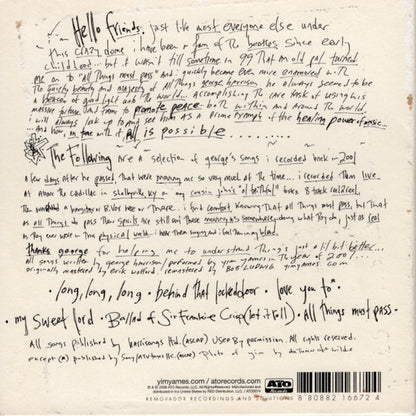 Hello friends, just like most everyone else under
this crazy dome i have been a fan of the beatles since early
childhood... but it wasn't till sometime in 99 that an old pal turned
me on to "All Things must pass" and i quickly became even more enamored with
the quiet beauty and majesty of All Things george harrison. he always seemed to be
a beacon of good light with the world... accomplishing the rare task of using his
massive fortune and fame to promote peace both within and around the world.
i will always look up to and see him as a prime example of the healing power of music...
and how, in tune with it all is possible........
The Following are a selection of george's songs i recorded back in 2001
a few days after he passed that were moving me so very much at the time... i recorded them live
at above the cadillac in shelbyville, ky on my cousin john's "ol faithful" tascam 8 track reel2reel.
There in i find comfort knowing that All Things must pass, but that
as all Things do pass their spirits are still out there moving us somewhere doing what they do, just as real
as they ever were in this physical world... i hear them singing and i feel them in my blood.
thanks george for helping me to understand Things just a lil bit better...
all songs written by george harrison/performed by yim yames in the year of 2001..
originally mastered by erik wofford, remastered by BOB LUDWIG yimyames.com
·long, long, long · behind that locked door · love you to ·
my sweet lord · Ballad of Sir Frankie Crisp (let it roll) · All Things must pass ·
All songs published by Harrisongs ltd. (ascap) Used By permission. All rights reserved.
except (*) published by Sony/ATV tunes llc. (ascap) Photo of yim by
www.yimyames.com / atorecords.com
ATO RECORDS
REMOVADOR RECORDINGS AND SOLUTIONS
8 80882 16672 4